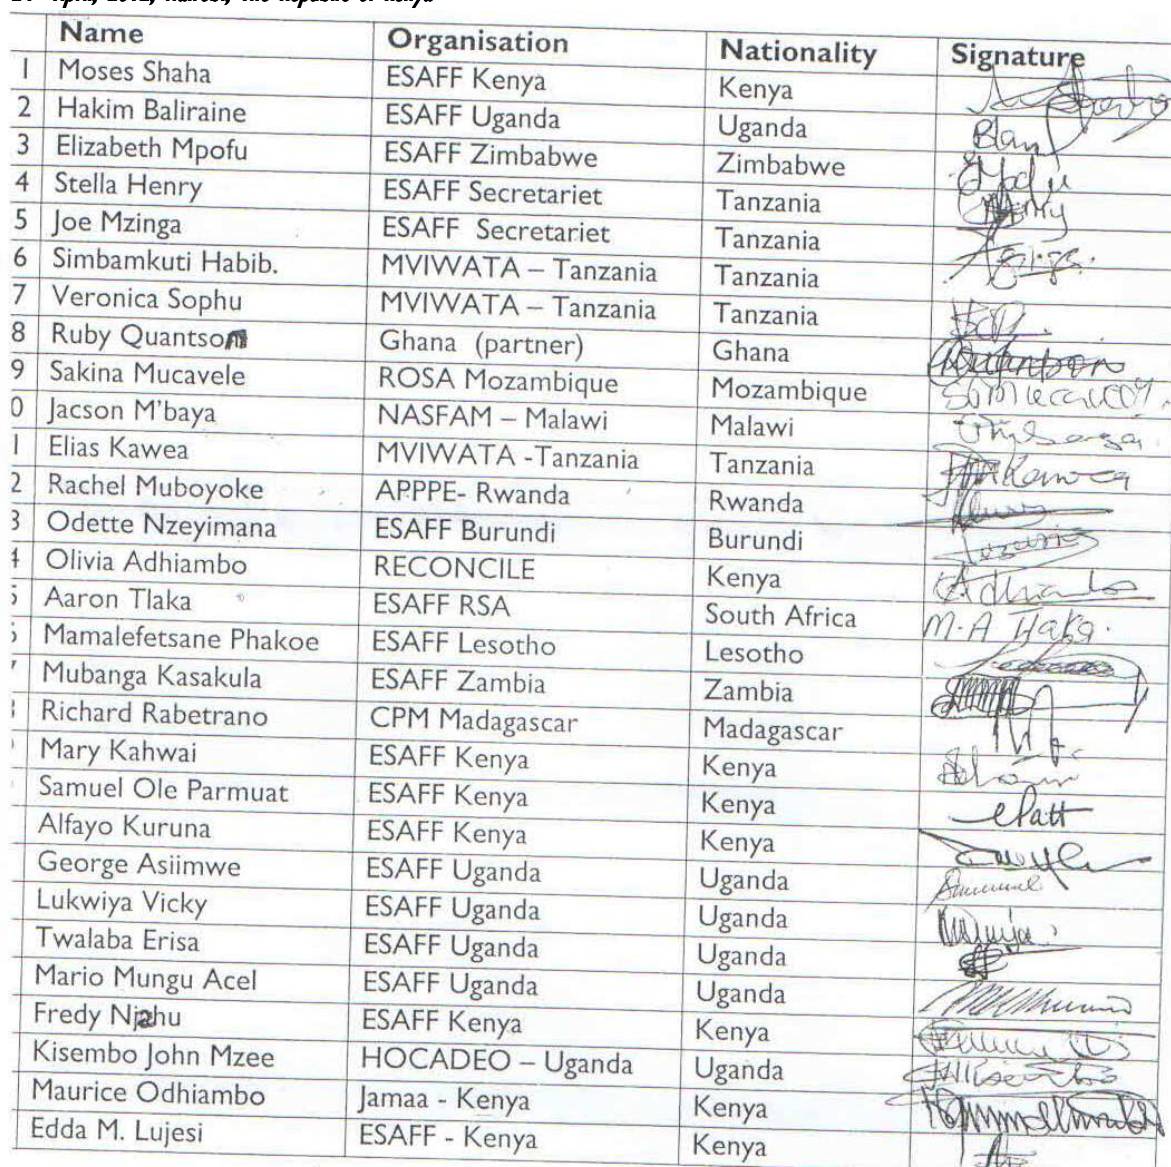 April, 2012, Nairobi, The Republic of Kenya
Name Organisation Nationality Signature
1 Moses Shaha ESAFF Kenya Kenya
2 Hakim Baliraine ESAFF Uganda Uganda
3 Elizabeth Mpofu ESAFF Zimbabwe Zimbabwe
4 Stella Henry ESAFF Secretariet Tanzania
5 Joe Mzinga ESAFF Secretariet Tanzania
6 Simbamkuti Habib. MVIWATA – Tanzania Tanzania
7 Veronica Sophu MVIWATA – Tanzania Tanzania
8 Ruby Quantson Ghana (partner) Ghana
9 Sakina Mucavele ROSA Mozambique Mozambique
0 Jacson M'baya NASFAM – Malawi Malawi
1 Elias Kawea MVIWATA -Tanzania Tanzania
2 Rachel Muboyoke APPPE- Rwanda Rwanda
3 Odette Nzeyimana ESAFF Burundi Burundi
4 Olivia Adhiambo RECONCILE Kenya Adhiambo
5 Aaron Tlaka ESAFF RSA South Africa M.A Tlaka.
6 Mamalefetsane Phakoe ESAFF Lesotho Lesotho
7 Mubanga Kasakula ESAFF Zambia Zambia
Richard Rabetrano CPM Madagascar Madagascar
Mary Kahwai ESAFF Kenya Kenya
Samuel Ole Parmuat ESAFF Kenya Kenya
Alfayo Kuruna ESAFF Kenya Kenya
George Asiimwe ESAFF Uganda Uganda
Lukwiya Vicky ESAFF Uganda Uganda
Twalaba Erisa ESAFF Uganda Uganda
Mario Mungu Acel ESAFF Uganda Uganda
Fredy Njahu ESAFF Kenya Kenya
Kisembo John Mzee HOCADEO – Uganda Uganda
Maurice Odhiambo Jamaa - Kenya Kenya
Edda M. Lujesi ESAFF - Kenya Kenya